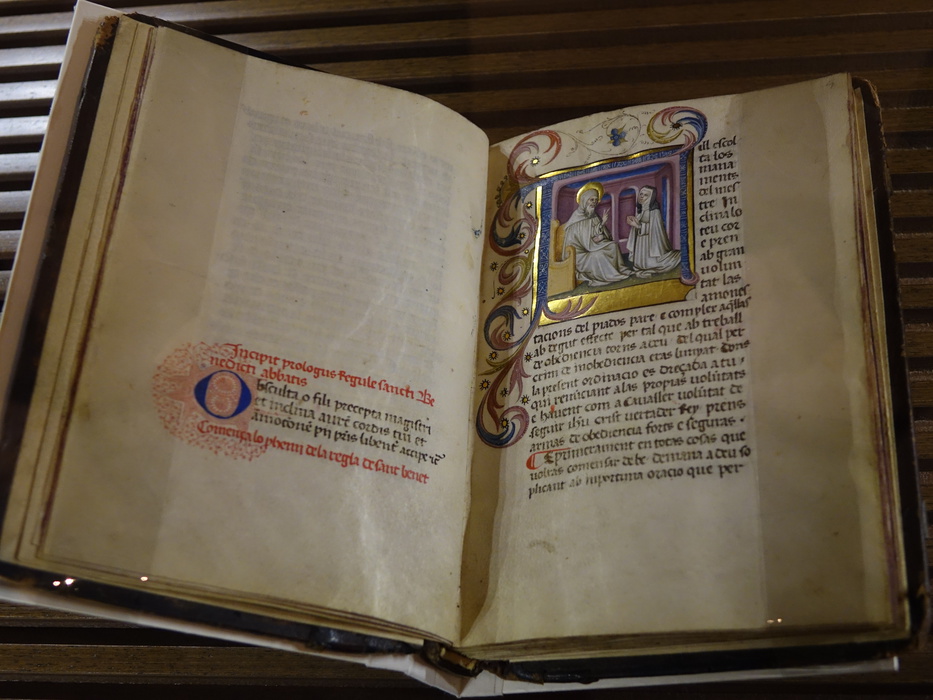 Incipit prologus Regule sancti Be
nedicti abbatis
Obsculta o fili precepta magistri
et inclina aurē cordis tui et
amonicōnē pii pr̄is libent̄ accipe
Comença lo phemi dela regla de sant benet
fill escol
ta los
mana
ments
del mes
tre In
clina lo
teu cor
e pren
ab gran
volun
tat las
amones
tacions del piados pare e complex aq̄llas
ab degut effecte per tal que ab treball
de obediencia torns a deu del qual per
crim de inobediencia eras lunyat Dons
la present ordinacio es dreçada a tu
qui renunciant a las propias voluntats
e havent com a Cavaller voluntat de
seguir ihū crist vertader Rey prens
armas de obediencia forts e seguras
E primerament en totas cosas que
volras comensar debe demana a deu so
plicant ab importuna oracio que per